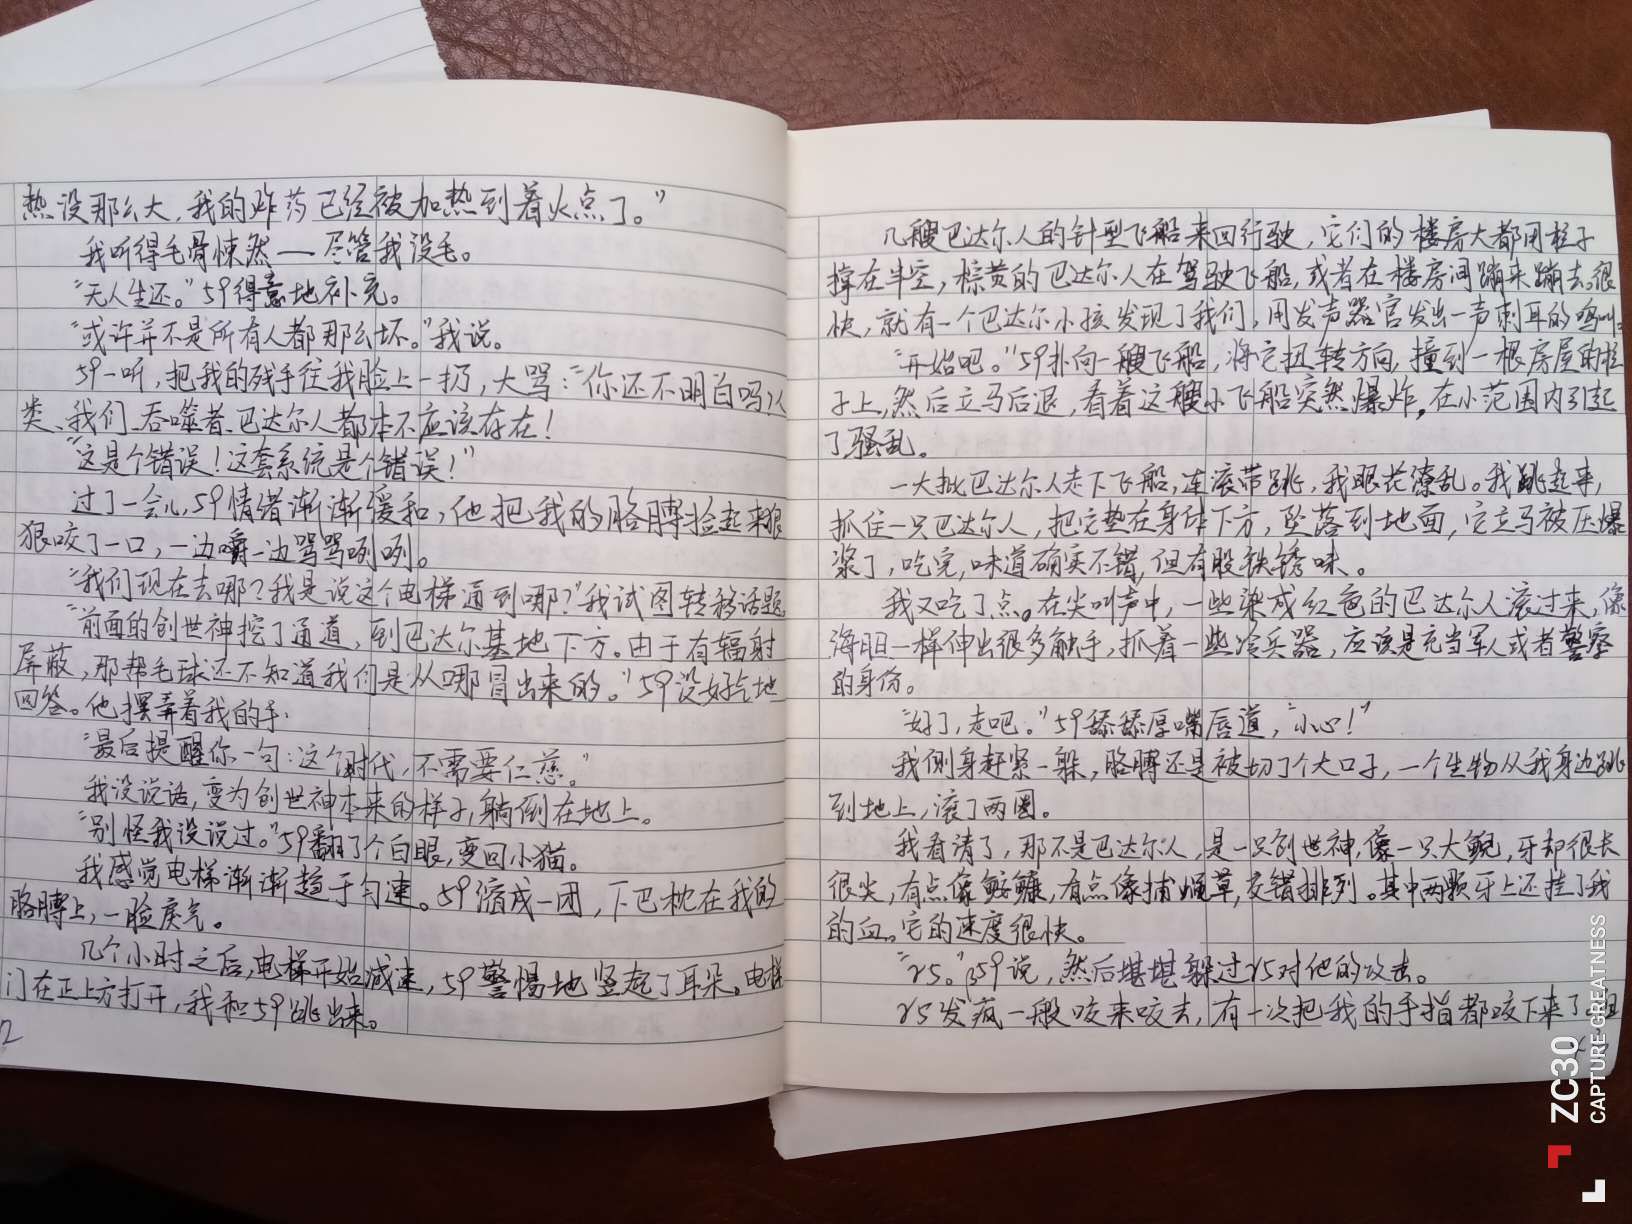 热没那么大，我的炸药已经被加热到着火点了。”
我听得毛骨悚然——尽管我没毛。
“无人生还。”59得意地补充。
“或许并不是所有人都那么坏。”我说。
59一听，把我的残手往我脸上一扔，大骂：“你还不明白吗！人
类、我们、吞噬者、巴达尔人都本不应该存在！
“这是个错误！这套系统是个错误！”
过了一会儿，59情绪渐渐缓和，他把我的胳膊捡起来狠
狠咬了一口，一边嚼一边骂骂咧咧。
“我们现在去哪？我是说这个电梯通到哪？”我试图转移话题
“前面的创世神挖了通道，到巴达尔基地下方。由于有辐射
屏蔽，那帮毛球还不知道我们是从哪冒出来的。”59没好气地
回答。他摆弄着我的手。
“最后提醒你一句：这个时代，不需要仁慈。”
我没说话，变为创世神本来的样子，躺倒在地上。
“别怪我没说过。”59翻了个白眼，变回小猫。
我感觉电梯渐渐趋于匀速。59缩成一团，下巴枕在我的
胳膊上，一脸戾气。
几个小时之后，电梯开始减速，59警惕地竖起了耳朵。电梯
门在正上方打开，我和59跳出来。
2
几艘巴达尔人的针型飞船来回行驶，它们的楼房大都用柱子
撑在半空，棕黄的巴达尔人在驾驶飞船，或者在楼房间蹦来蹦去。很
快，就有一个巴达尔小孩发现了我们，用发声器官发出一声刺耳的鸣叫。
“开始吧。”59扑向一艘飞船，将它扭转方向，撞到一根房屋的柱
子上，然后立马后退，看着这艘小飞船突然爆炸，在小范围内引起
了骚乱。
一大批巴达尔人走下飞船，连滚带跳，我眼花缭乱。我跳起来，
抓住一只巴达尔人，把它垫在身体下方，坠落到地面，它立马被压爆
浆了，吃完，味道确实不错，但有股铁锈味。
我又吃了点。在尖叫声中，一些染成红色的巴达尔人滚过来，像
海胆一样伸出很多触手，抓着一些冷兵器，应该是充当军人或者警察
的身份。
“好了，走吧。”59舔舔厚嘴唇道，“小心！”
我侧身赶紧一躲，胳膊还是被切了个大口子，一个生物从我身边跳
到地上，滚了两圈。
我看清了，那不是巴达尔人，是一只创世神，像一只大鲵，牙却很长
很尖，有点像鮟鱇，有点像捕蝇草，交错排列。其中两颗牙上还挂了我
的血。它的速度很快。
“25。”59说，然后堪堪躲过25对他的攻击。
25发疯一般咬来咬去，有一次把我的手指都咬下来了，但
ZC30
CAPTURE GREATNESS